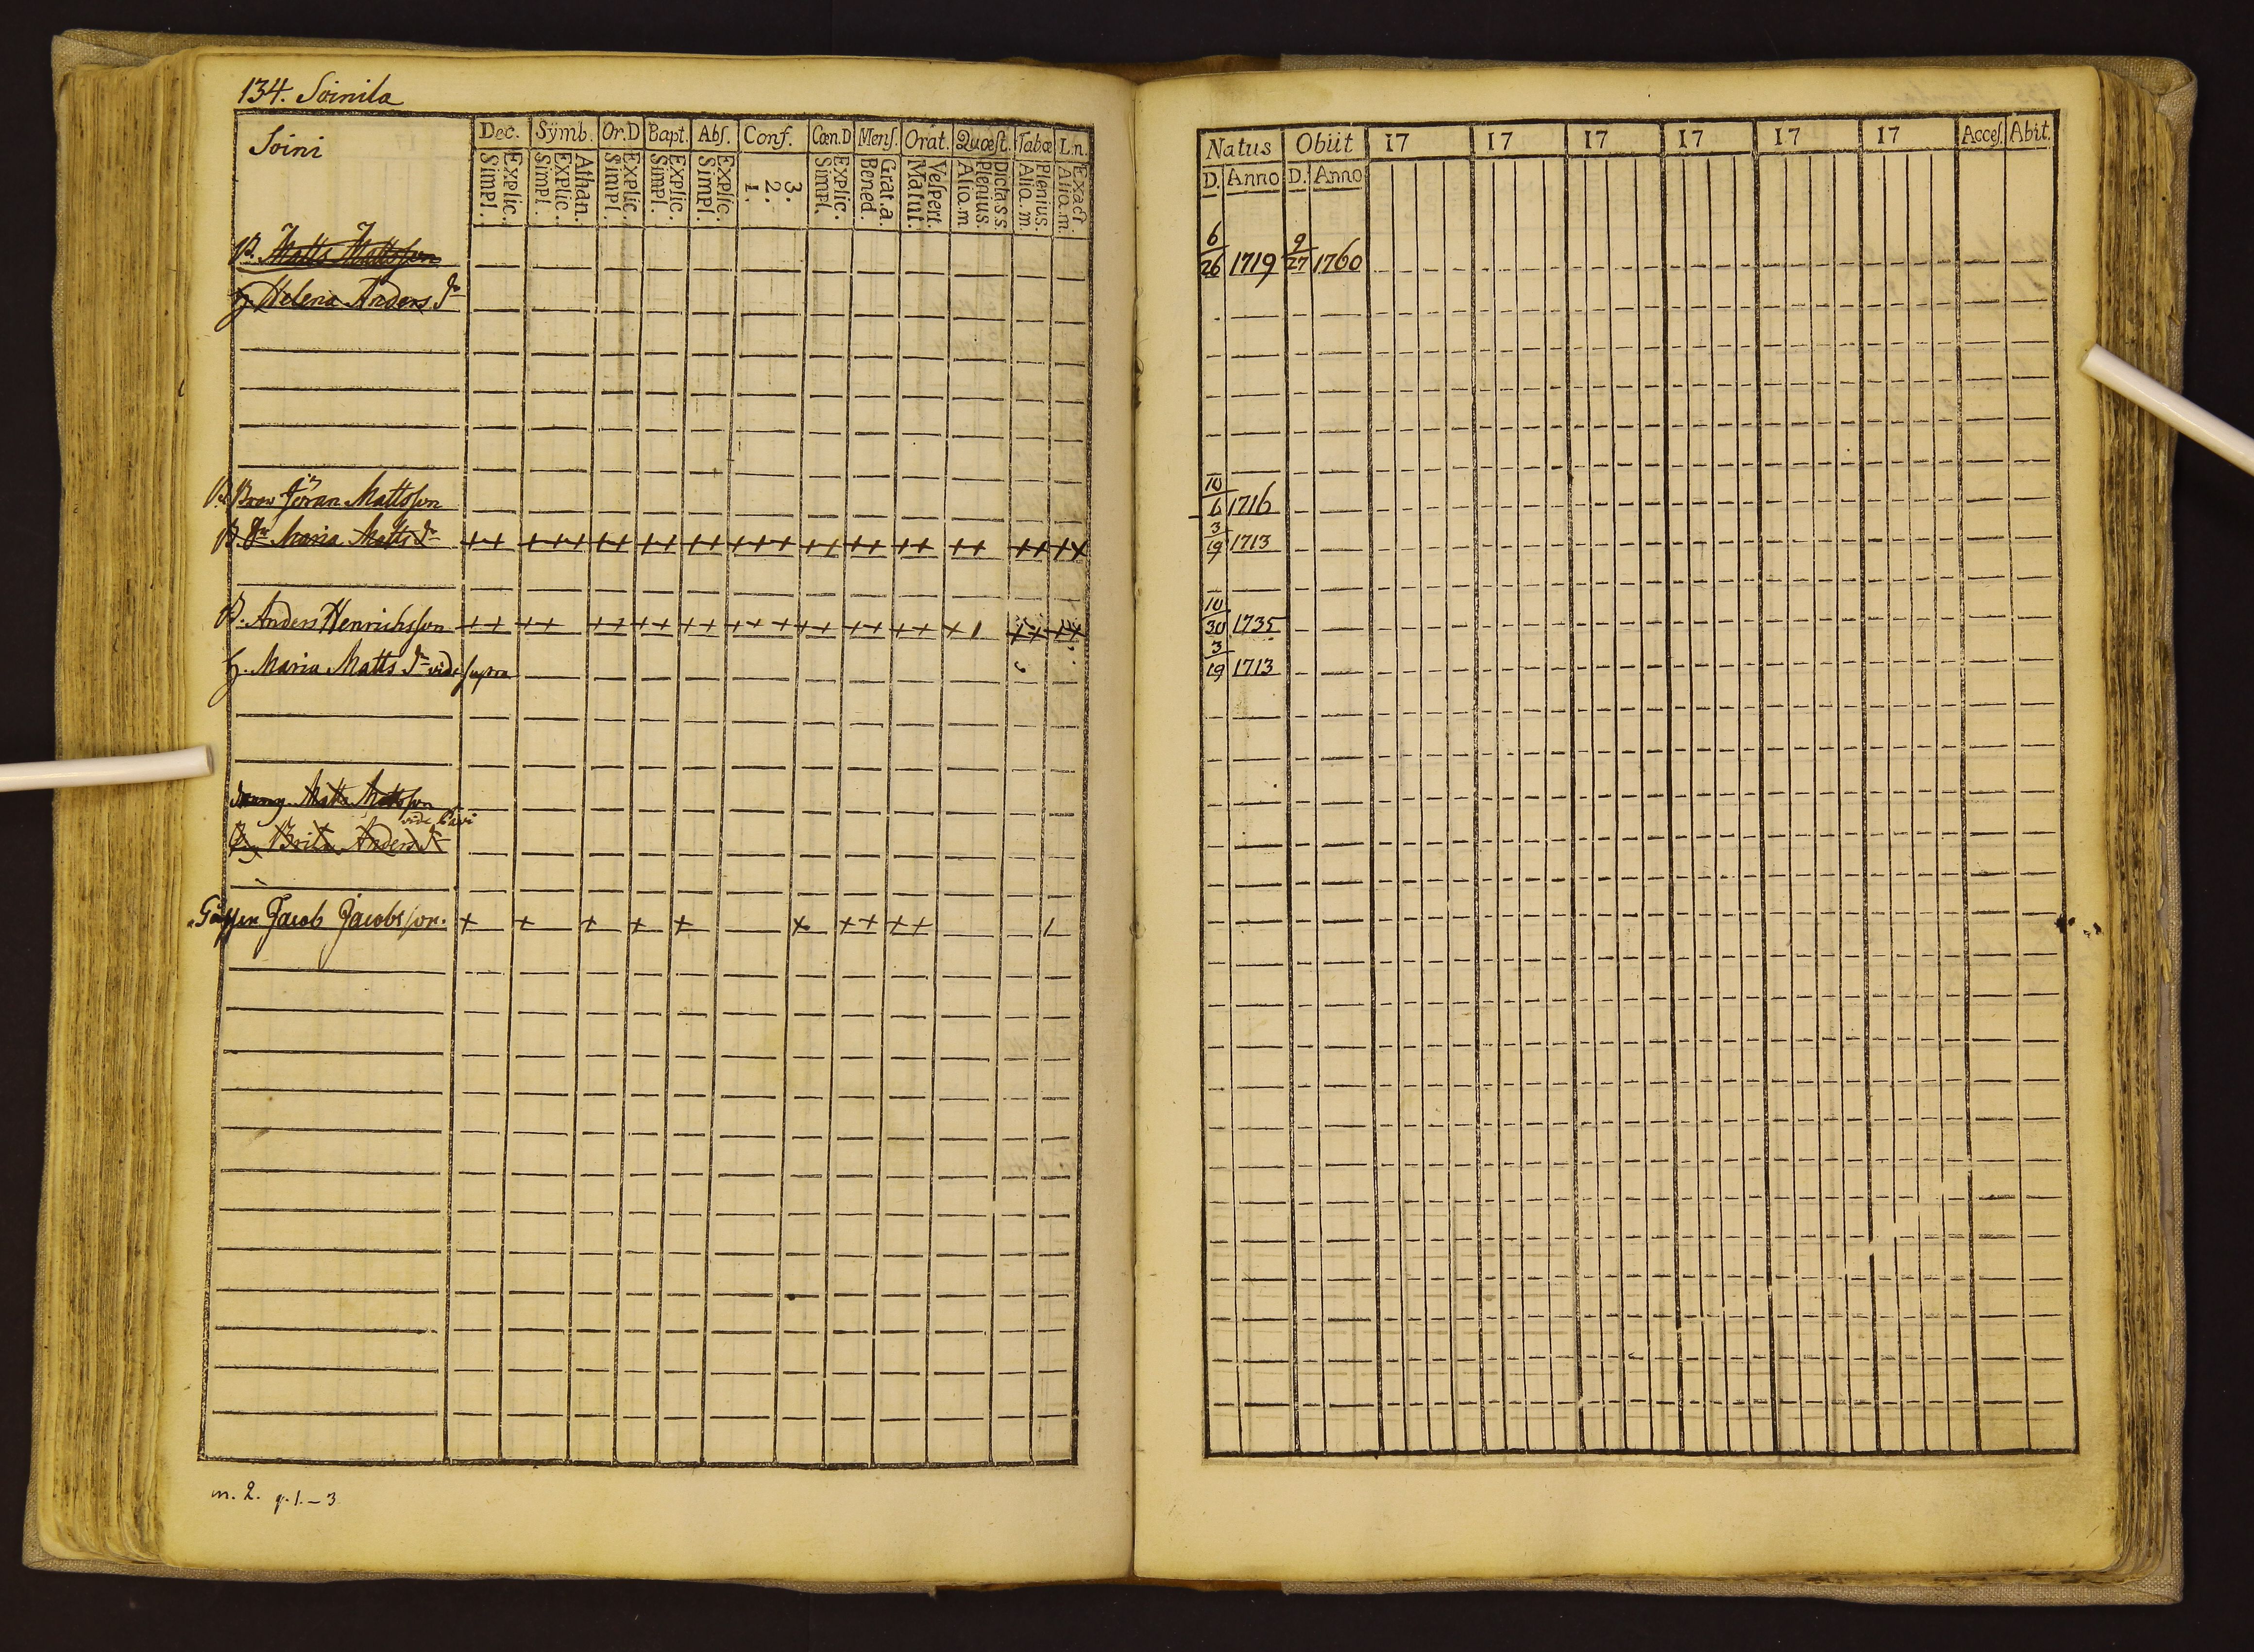 134. Soinila
Soini
Dec. Symb. Or.D Bapt. Abſ. Conf. Cœn.D Menſ. Orat. Quœſt. Tabœ L.n.
Explic. Simpl. Athan. Explic. Simpl. Explic. Simpl. Explic. Simpl. Explic. Simpl. 3. 2. 1. Explic. Simpl. Grat.a. Bened. Veſpert. Matut. Dicta.s.s. Plenius. Aliq.m Plenius. Aliq.m Exact. Aliq.m
B. Matts Mattsſon
H. Helena Anders dr
B. Bror Jöran Mattsſon
B. Dr Maria Matts dr ++ +++ ++ ++ ++ +++ ++ ++ ++ ++ ++ ++
B. Anders Henrichsſon ++ ++ ++ ++ ++ +++ ++ ++ ++ +1 ++ ++
H. Maria Matts dr vide ſupra
Matts Mattsſon
vide
Brita Anders dr
Jacob Jacobsſon. + + + + + + ++ ++ 1
m. 2. q. 1.–3
Natus Obiit 17 17 17 17 17 17 Acceſ. Abit.
D. Anno D. Anno
6/26 1719 9/27 1760
10/6 1716
3/19 1713
10/30 1735
3/19 1713